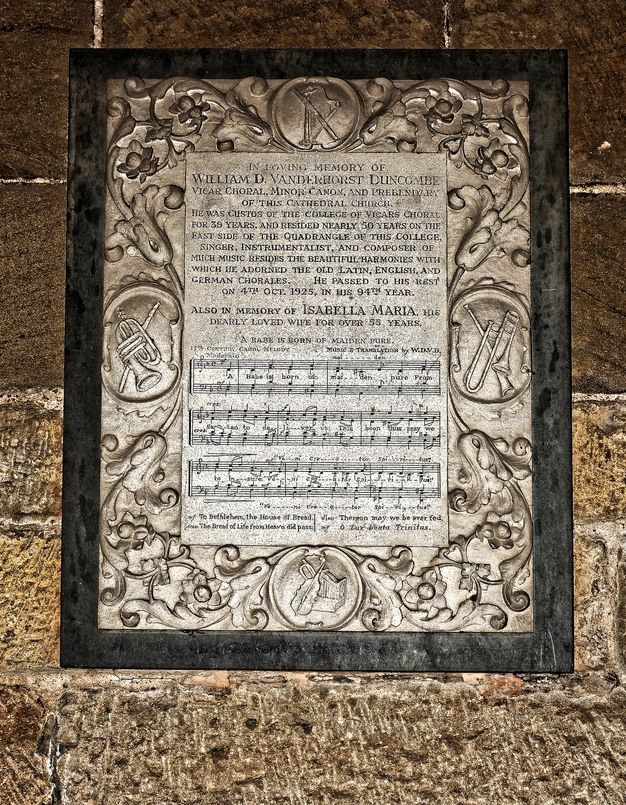 IN LOVING MEMORY OF
WILLIAM D. VANDERHORST DUNCOMBE
VICAR CHORAL, MINOR CANON, AND PREBENDARY
OF THIS CATHEDRAL CHURCH.
HE WAS CUSTOS OF THE COLLEGE OF VICARS CHORAL
FOR 36 YEARS, AND RESIDED NEARLY 50 YEARS ON THE
EAST SIDE OF THE QUADRANGLE OF THIS COLLEGE.
SINGER, INSTRUMENTALIST, AND COMPOSER OF
MUCH MUSIC BESIDES THE BEAUTIFUL HARMONIES WITH
WHICH HE ADORNED THE OLD LATIN, ENGLISH, AND
GERMAN CHORALES. HE PASSED TO HIS REST
ON 4TH OCT. 1925, IN HIS 94TH YEAR.
ALSO IN MEMORY OF ISABELLA MARIA, HIS
DEARLY LOVED WIFE FOR OVER 55 YEARS.
A BABE IS BORN OF MAIDEN PURE.
CENTURY, CAROL MELODY MUSIC & TRANSLATION BY W.D.V.D.
Moderato
A Babe is born of mai - den pure From
Sa - tan to de - li - ver us This boon thus pray we
to in - sure
"Ve - ni Cre - a - tor Spi - ri - tus"
mf To Bethlehem, the House of Bread, dim Thereon may we be ever fed,
The Bread of Life from Heav'n did pass, mf O Lux beata Trinitas.